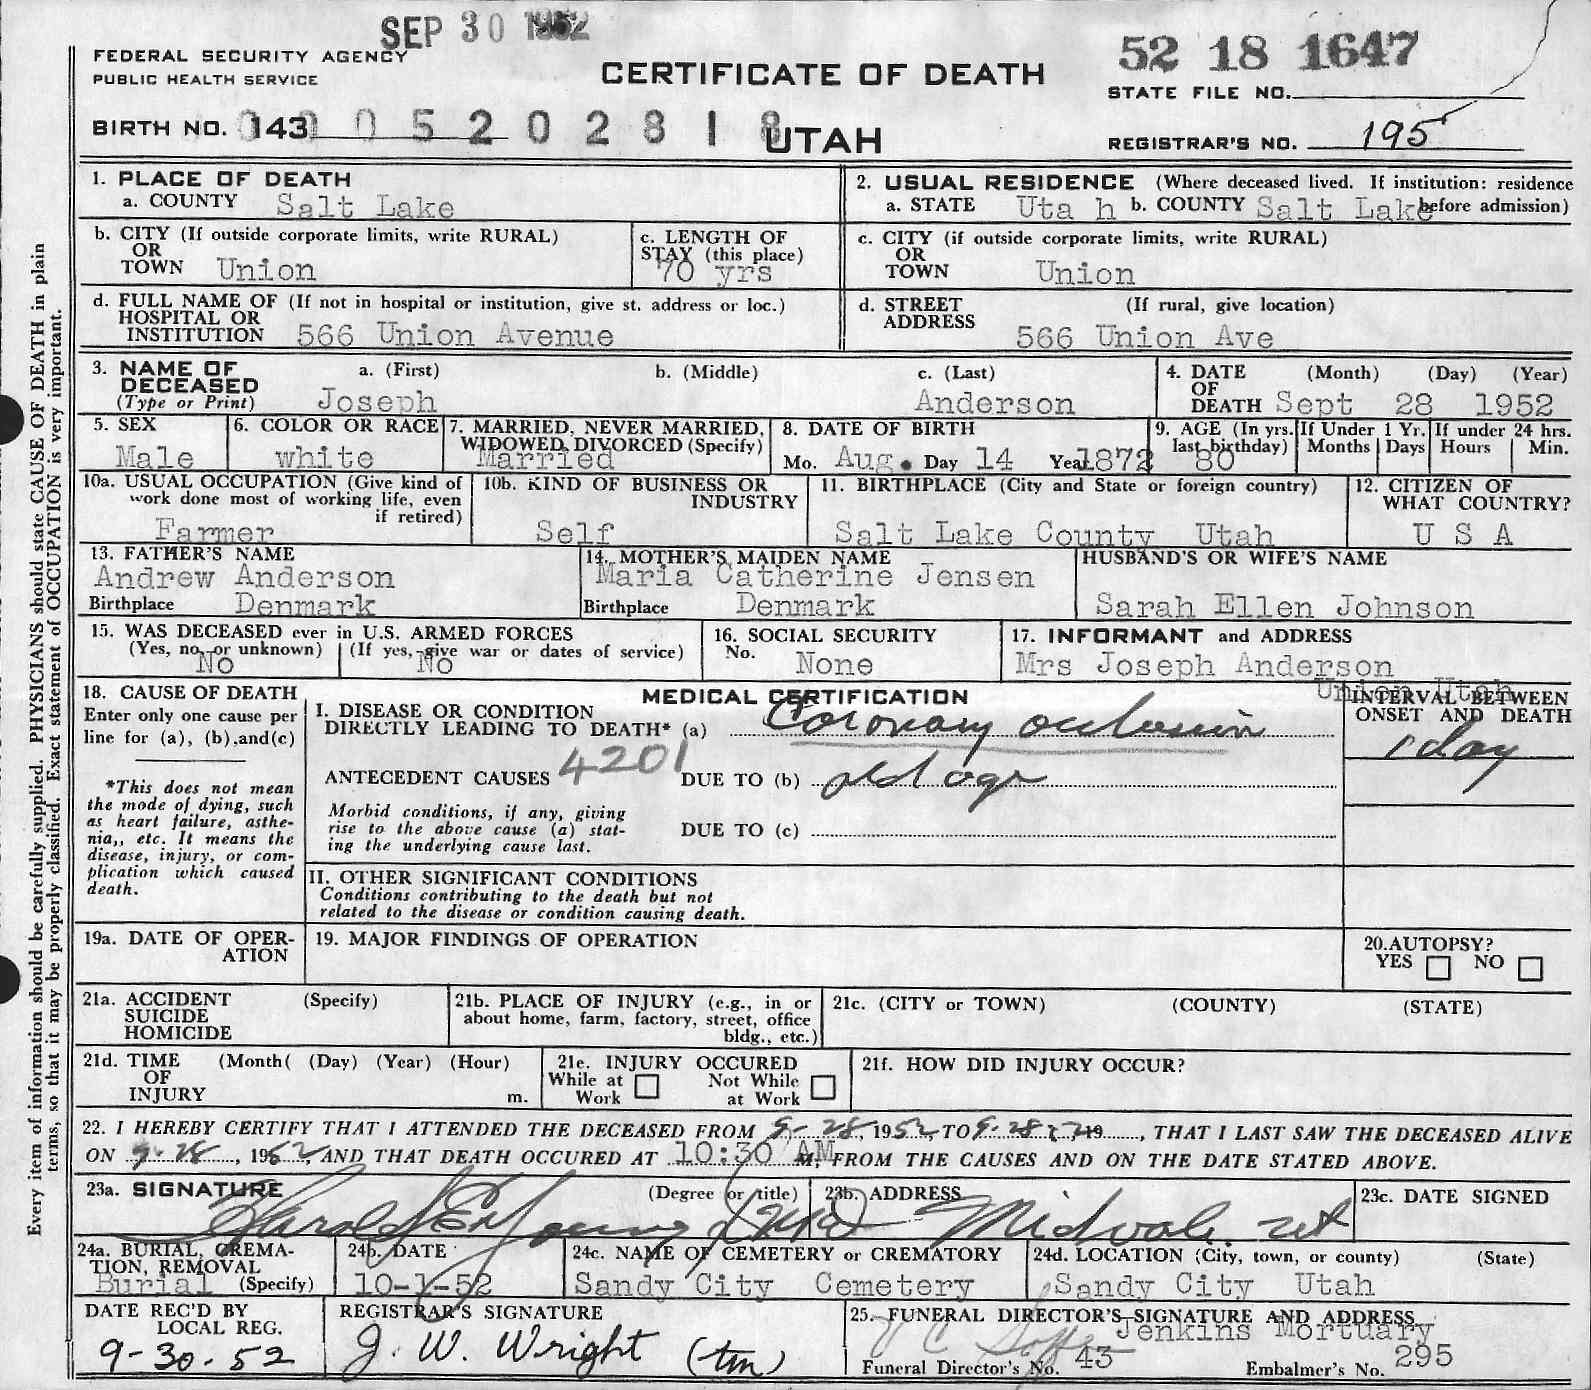 SEP 30 1952
FEDERAL SECURITY AGENCY
PUBLIC HEALTH SERVICE
CERTIFICATE OF DEATH
52 18 1647
STATE FILE NO.
BIRTH NO. 143 0 5 2 0 2 8 1 8
UTAH
REGISTRAR'S NO. 195
1. PLACE OF DEATH
a. COUNTY Salt Lake
2. USUAL RESIDENCE (Where deceased lived. If institution: residence before admission)
a. STATE Uta h b. COUNTY Salt Lake
b. CITY (If outside corporate limits, write RURAL)
OR
TOWN Union
c. LENGTH OF
STAY (this place)
70 yrs
c. CITY (if outside corporate limits, write RURAL)
OR
TOWN Union
d. FULL NAME OF (If not in hospital or institution, give st. address or loc.)
HOSPITAL OR
INSTITUTION 566 Union Avenue
d. STREET (If rural, give location)
ADDRESS 566 Union Ave
3. NAME OF
DECEASED
(Type or Print)
a. (First) b. (Middle) c. (Last)
Joseph Anderson
4. DATE (Month) (Day) (Year)
OF
DEATH Sept 28 1952
5. SEX
Male
6. COLOR OR RACE
white
7. MARRIED, NEVER MARRIED,
WIDOWED, DIVORCED (Specify)
Married
8. DATE OF BIRTH
Mo. Aug. Day 14 Year 1872
9. AGE (In yrs.
last birthday)
80
If Under 1 Yr.
Months Days
If under 24 hrs.
Hours Min.
10a. USUAL OCCUPATION (Give kind of
work done most of working life, even
if retired)
Farmer
10b. KIND OF BUSINESS OR
INDUSTRY
Self
11. BIRTHPLACE (City and State or foreign country)
Salt Lake County Utah
12. CITIZEN OF
WHAT COUNTRY?
U S A
13. FATHER'S NAME
Andrew Anderson
Birthplace Denmark
14. MOTHER'S MAIDEN NAME
Maria Catherine Jensen
Birthplace Denmark
HUSBAND'S OR WIFE'S NAME
Sarah Ellen Johnson
15. WAS DECEASED ever in U.S. ARMED FORCES
(Yes, no, or unknown) (If yes, give war or dates of service)
No No
16. SOCIAL SECURITY
No. None
17. INFORMANT and ADDRESS
Mrs Joseph Anderson
Union Utah
18. CAUSE OF DEATH
Enter only one cause per
line for (a), (b), and(c)
*This does not mean
the mode of dying, such
as heart failure, asthe-
nia,, etc. It means the
disease, injury, or com-
plication which caused
death.
MEDICAL CERTIFICATION
I. DISEASE OR CONDITION
DIRECTLY LEADING TO DEATH* (a) Coronary occlusion
INTERVAL BETWEEN
ONSET AND DEATH
1 day
ANTECEDENT CAUSES 4201 DUE TO (b) old age
Morbid conditions, if any, giving
rise to the above cause (a) stat-
ing the underlying cause last.
DUE TO (c)
II. OTHER SIGNIFICANT CONDITIONS
Conditions contributing to the death but not
related to the disease or condition causing death.
19a. DATE OF OPER-
ATION
19. MAJOR FINDINGS OF OPERATION
20. AUTOPSY?
YES NO
21a. ACCIDENT (Specify)
SUICIDE
HOMICIDE
21b. PLACE OF INJURY (e.g., in or
about home, farm, factory, street, office
bldg., etc.)
21c. (CITY or TOWN) (COUNTY) (STATE)
21d. TIME (Month( (Day) (Year) (Hour)
OF
INJURY m.
21e. INJURY OCCURED
While at Work Not While at Work
21f. HOW DID INJURY OCCUR?
22. I HEREBY CERTIFY THAT I ATTENDED THE DECEASED FROM 9-28, 1952, TO 9-28, 19, THAT I LAST SAW THE DECEASED ALIVE
ON 9-28, 1952, AND THAT DEATH OCCURED AT 10:30 AM, FROM THE CAUSES AND ON THE DATE STATED ABOVE.
23a. SIGNATURE (Degree or title)
Harold E Young
23b. ADDRESS
Midvale, Ut
23c. DATE SIGNED
24a. BURIAL, CREMA-
TION, REMOVAL
Burial (Specify)
24b. DATE
10-1-52
24c. NAME OF CEMETERY or CREMATORY
Sandy City Cemetery
24d. LOCATION (City, town, or county) (State)
Sandy City Utah
DATE REC'D BY
LOCAL REG.
9-30-52
REGISTRAR'S SIGNATURE
J. W. Wright (tm)
25. FUNERAL DIRECTOR'S SIGNATURE AND ADDRESS
Jenkins Mortuary
Funeral Director's No. 43 Embalmer's No. 295
Every item of information should be carefully supplied. PHYSICIANS should state CAUSE OF DEATH in plain
terms, so that it may be properly classified. Exact statement of OCCUPATION is very important.